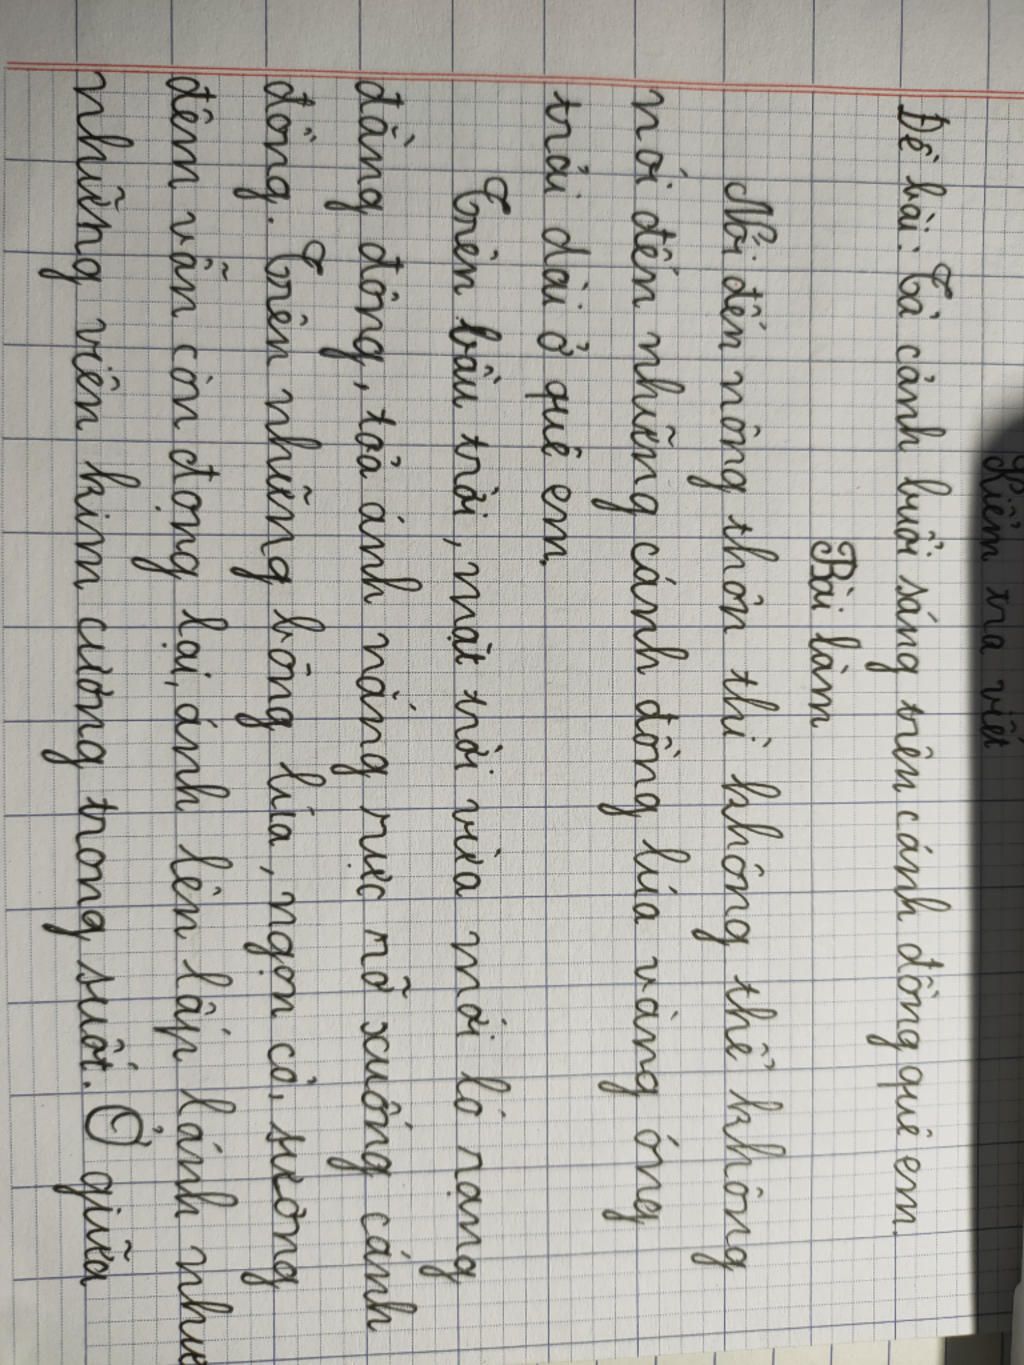 Kiểm tra viết
Đề bài: Tả cảnh buổi sáng trên cánh đồng quê em.
Bài làm
Nói đến nông thôn thì không thể không
nói đến những cánh đồng lúa vàng óng
trải dài ở quê em.
Trên bầu trời, mặt trời vừa mới ló rạng
đằng đông, toả ánh nắng rực rỡ xuống cánh
đồng. Trên những bông lúa, ngọn cỏ, sương
đêm vẫn còn đọng lại, ánh lên lấp lánh như
những viên kim cương trong suốt. Ở giữa